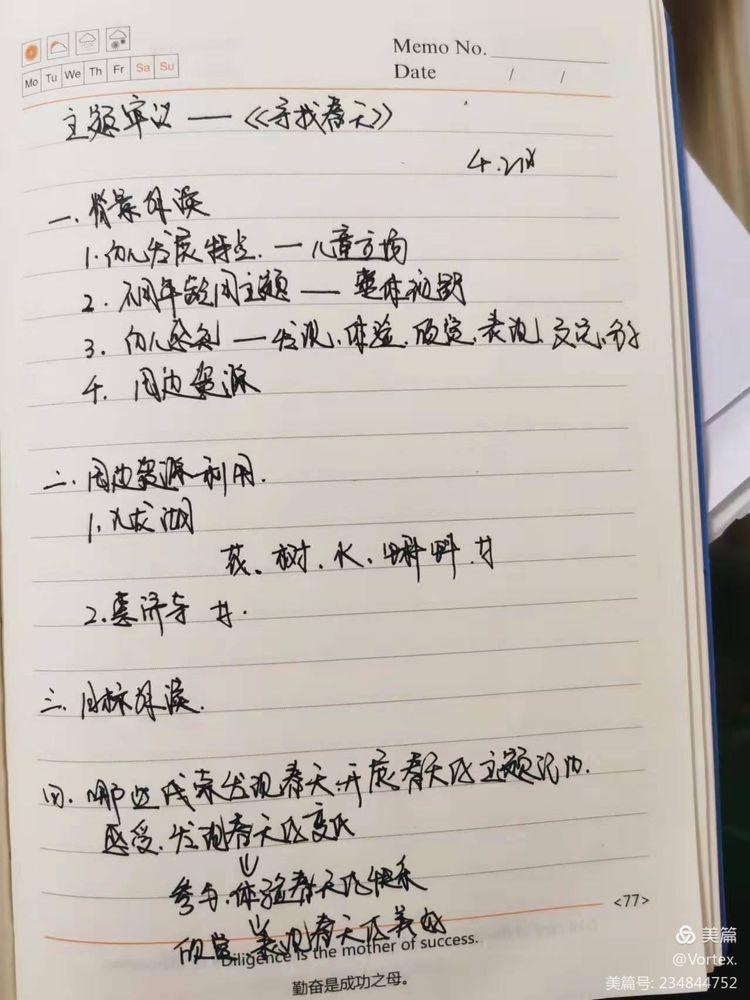 Memo No.
Mo Tu We Th Fr Sa Su
Date / /
主题审议——《寻找春天》
4.21
一、背景解读
1.幼儿发展特点——儿童方面
2.不同年龄同主题——整体视野
3.幼儿感知——发现、体验、欣赏、表现、交流
4.周边资源
二、周边资源利用.
1.九龙湖
花、树、水、蝌蚪、井
2.惠济寺 井.
三、目标解读.
四、哪些线索发现春天、开展春天的主题活动.
感受、发现春天的变化
参与、体验春天的快乐
欣赏、表现春天的美好
<77>
Diligence is the mother of success.
勤奋是成功之母。
美篇
@Vortex.
美篇号: 234844752